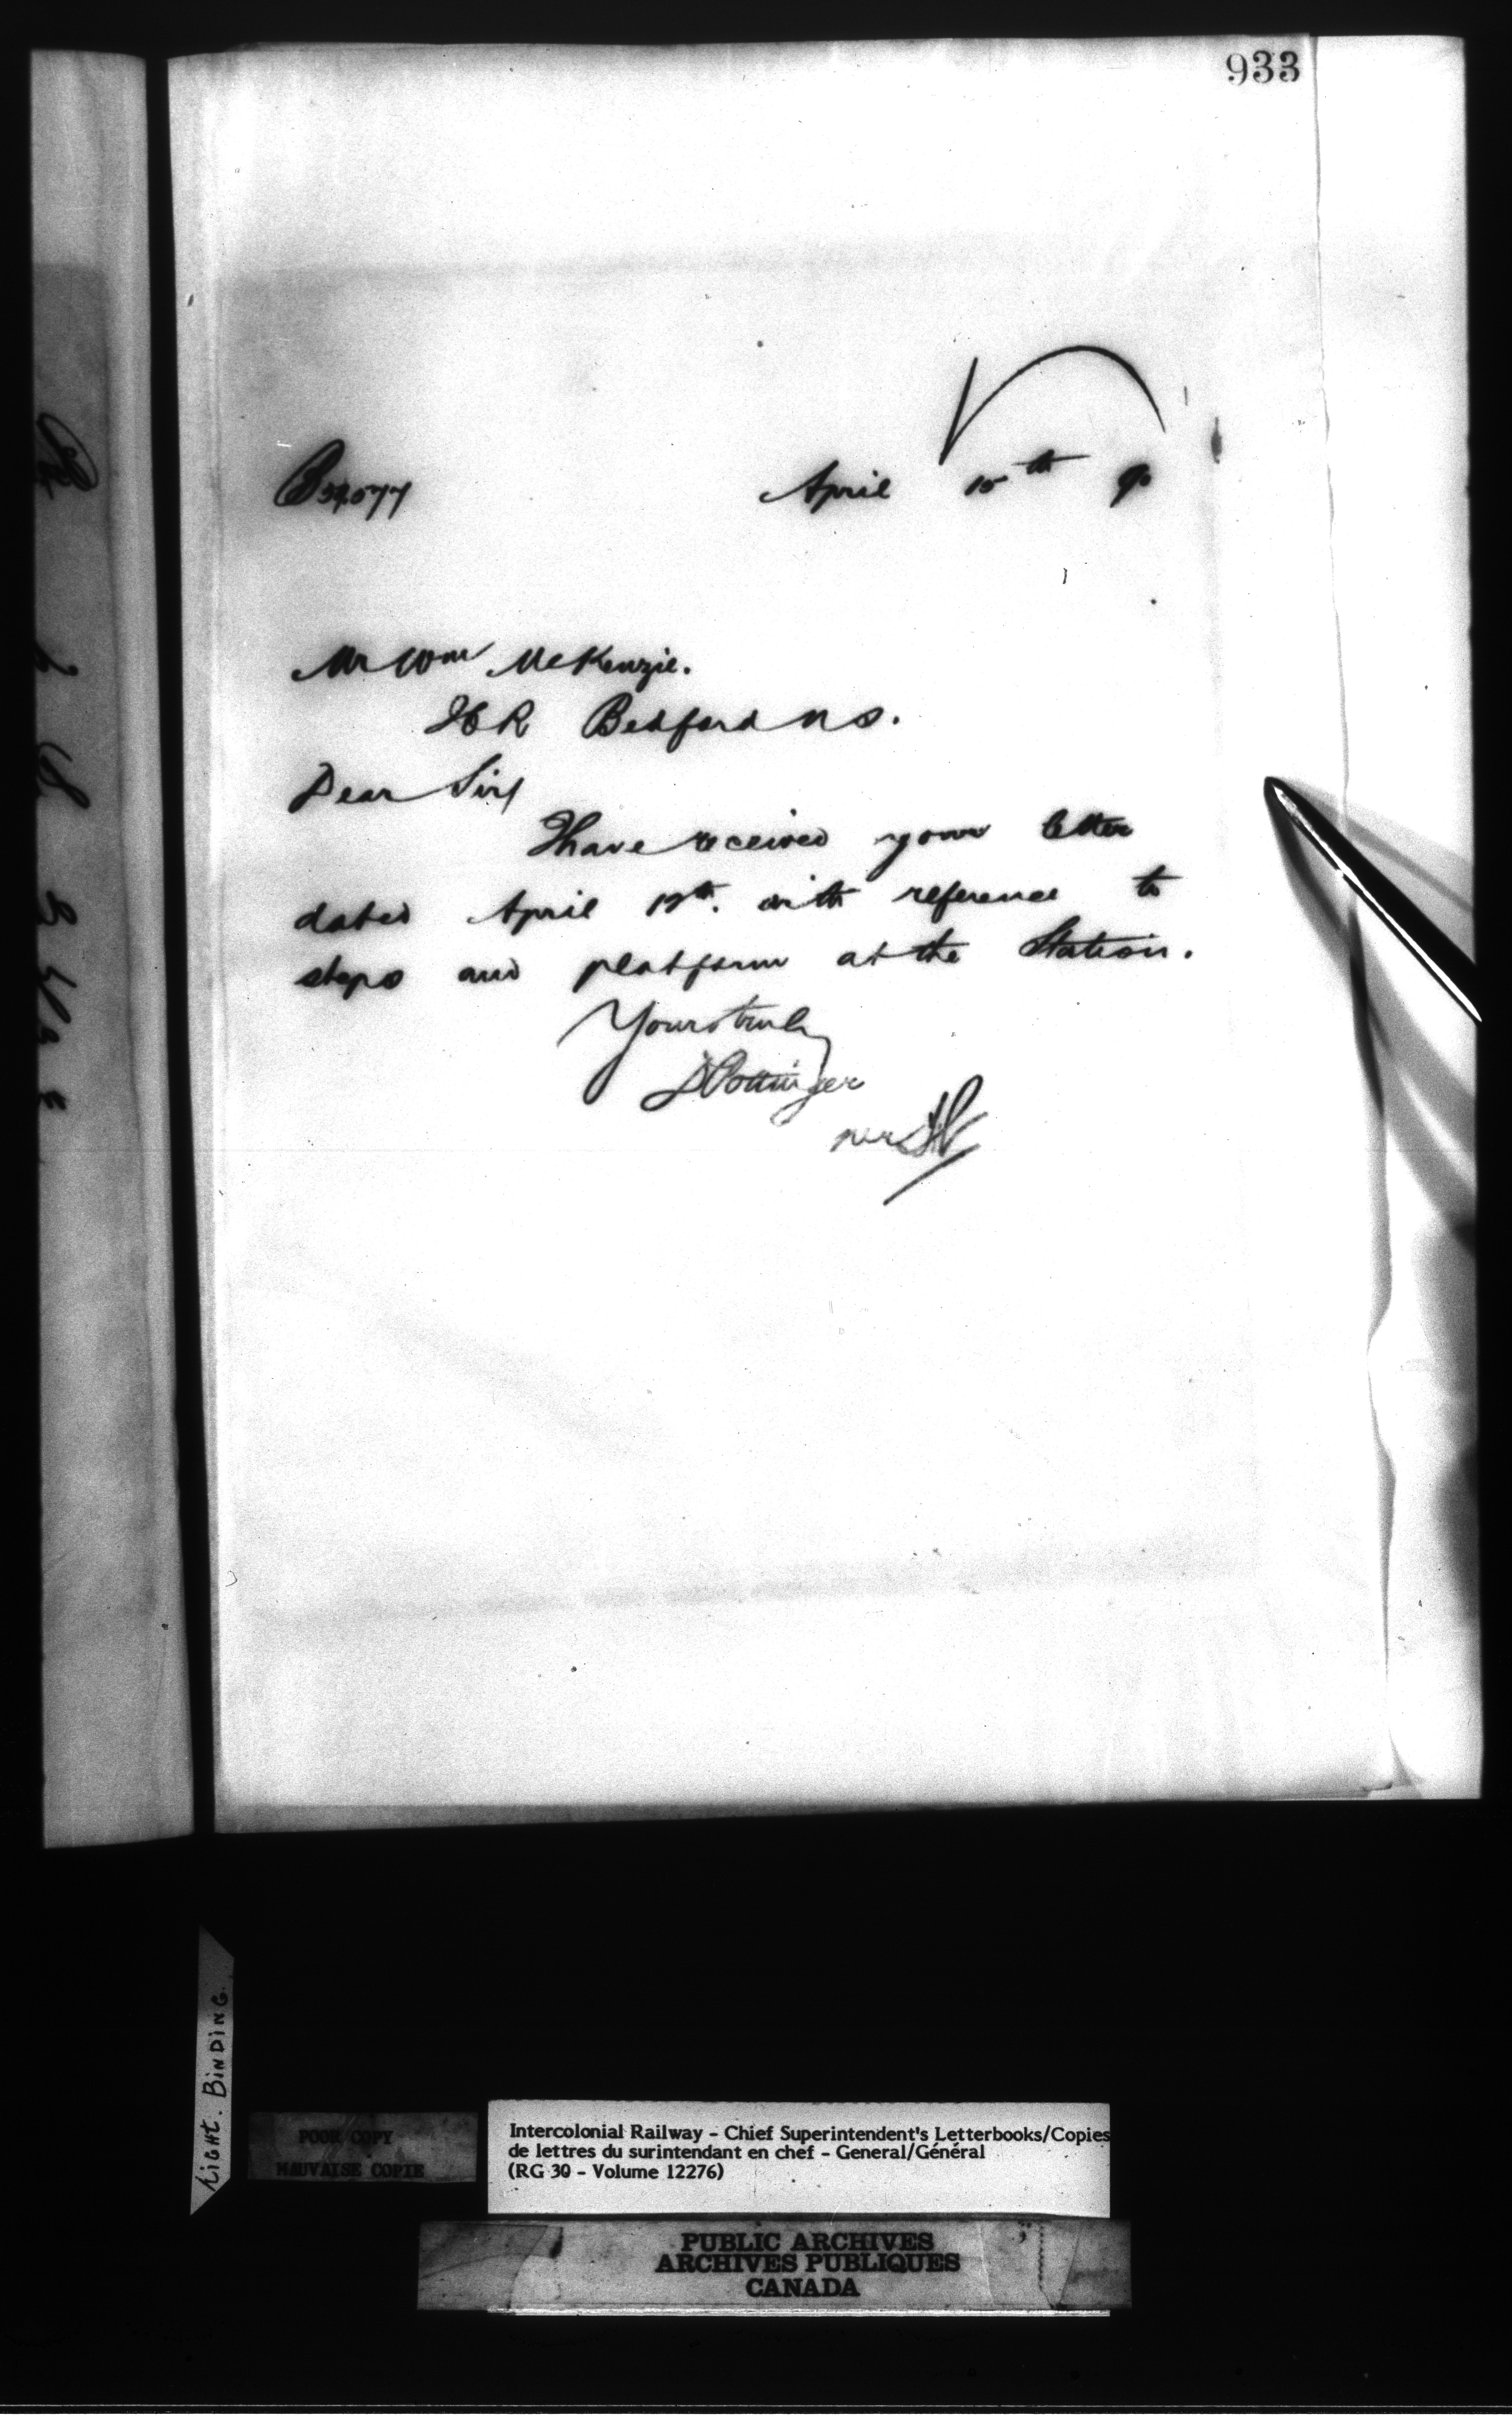 933
April 15th 90
Mr Wm McKenzie.
Bedford N S.
Dear Sir/
I have received your letter
dated April 12th. with reference to
steps and platform at the Station.
Yours truly
D Pottinger
per
Tight. Binding.
POOR COPY
MAUVAISE COPIE
Intercolonial Railway - Chief Superintendent's Letterbooks/Copies
de lettres du surintendant en chef - General/Général
(RG 30 - Volume 12276)
PUBLIC ARCHIVES
ARCHIVES PUBLIQUES
CANADA